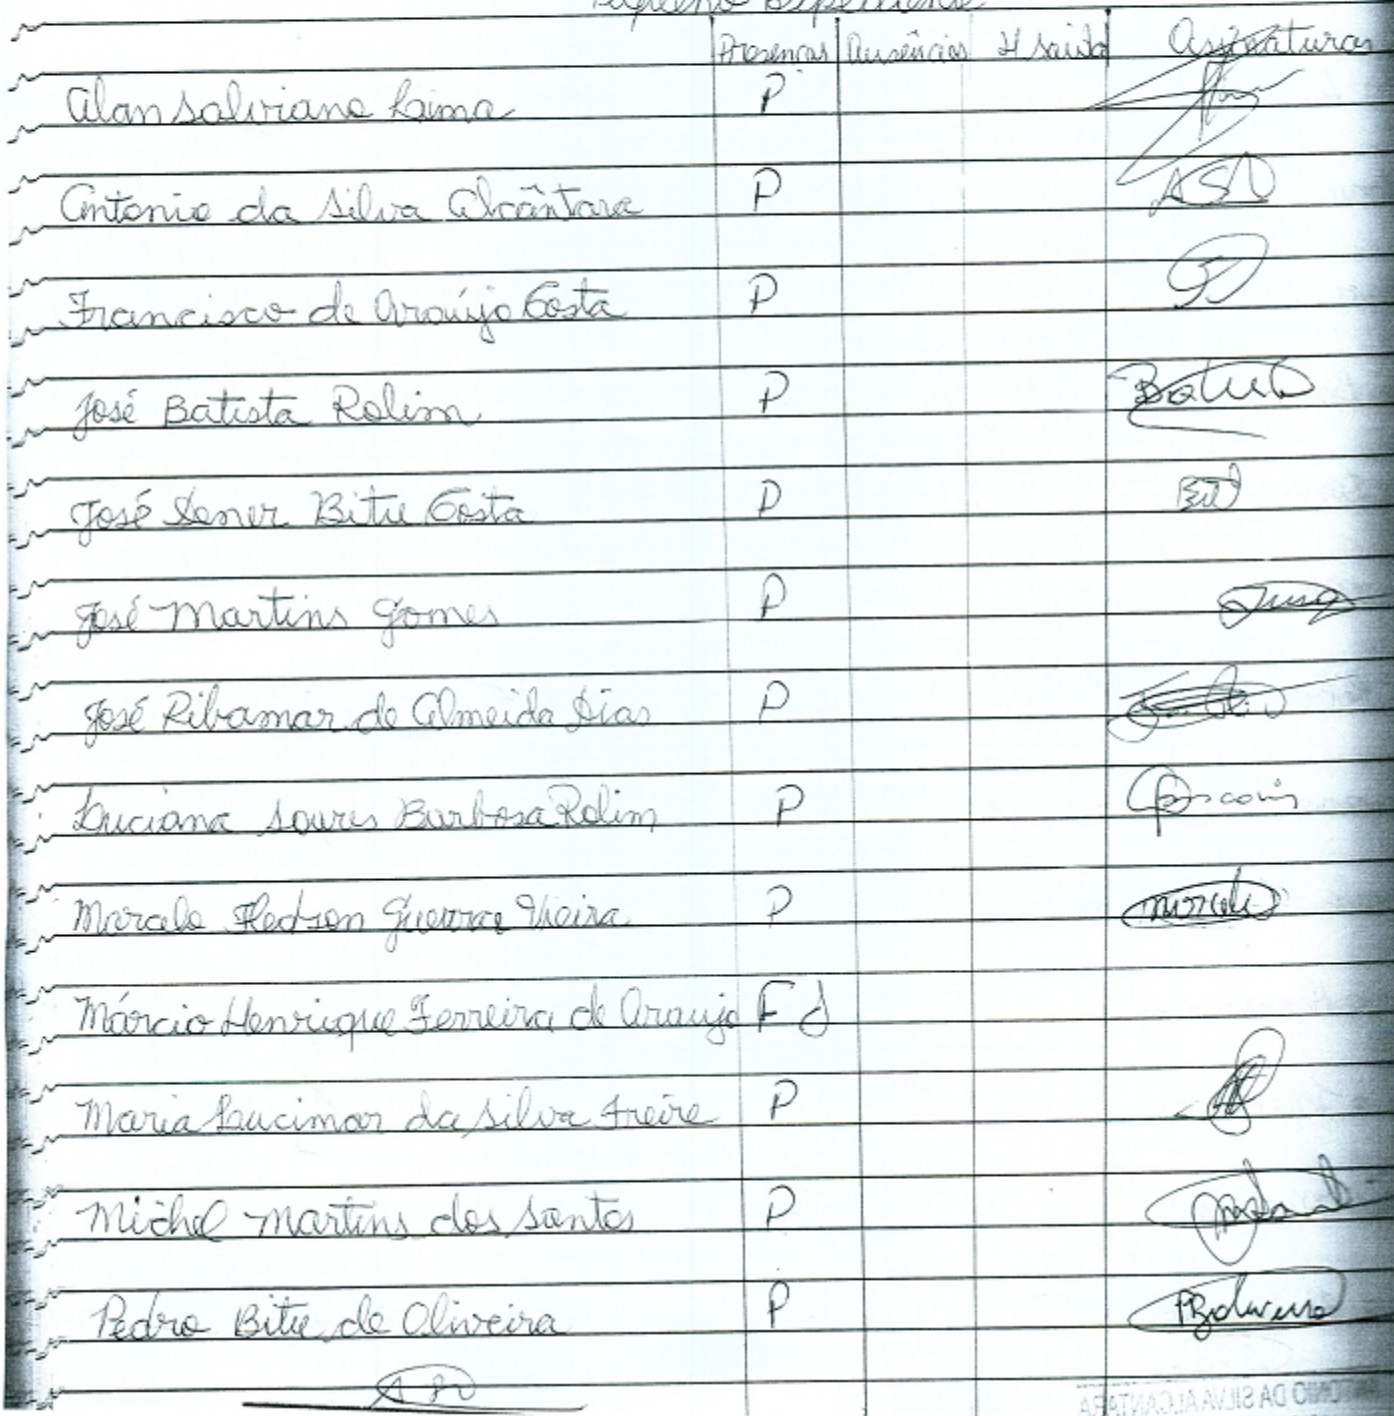 Pequeno Expediente
Presenças Ausências H saida Assinaturas
Alan Salviano Lima P
Antonio da Silva Alcântara P ASA
Francisco de Araújo Costa P
José Batista Rolim P Batista
José Sener Bitu Costa P Bitu
José Martins Gomes P
José Ribamar de Almeida Dias P
Luciana Soares Barbosa Rolim P
Marcelo Hedson Guerra Vieira P Marcelo
Márcio Henrique Ferreira de Araujo F J
Maria Lucimar da Silva Freire P
Michel Martins dos Santos P
Pedro Bitu de Oliveira P PBoliveira
ANTONIO DA SILVA ALCANTARA